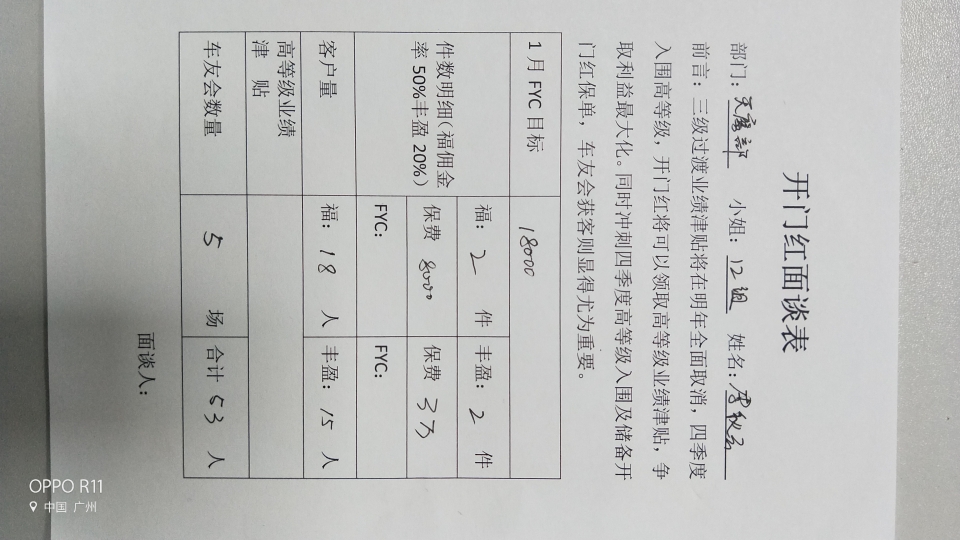 开门红面谈表
部门： 小姐：12组 姓名：
前言：三级过渡业绩津贴将在明年全面取消，四季度
入围高等级，开门红将可以领取高等级业绩津贴，争
取利益最大化。同时冲刺四季度高等级入围及储备开
门红保单，车友会获客则显得尤为重要。
1月FYC目标 18000
件数明细（福佣金率50%丰盈20%） 福：2 件 丰盈：2 件
保费 8000 保费 3万
FYC: FYC:
客户量 福：18 人 丰盈：15 人
高等级业绩津 贴
车友会数量 5 场 合计 53 人
面谈人：
OPPO R11
中国 广州